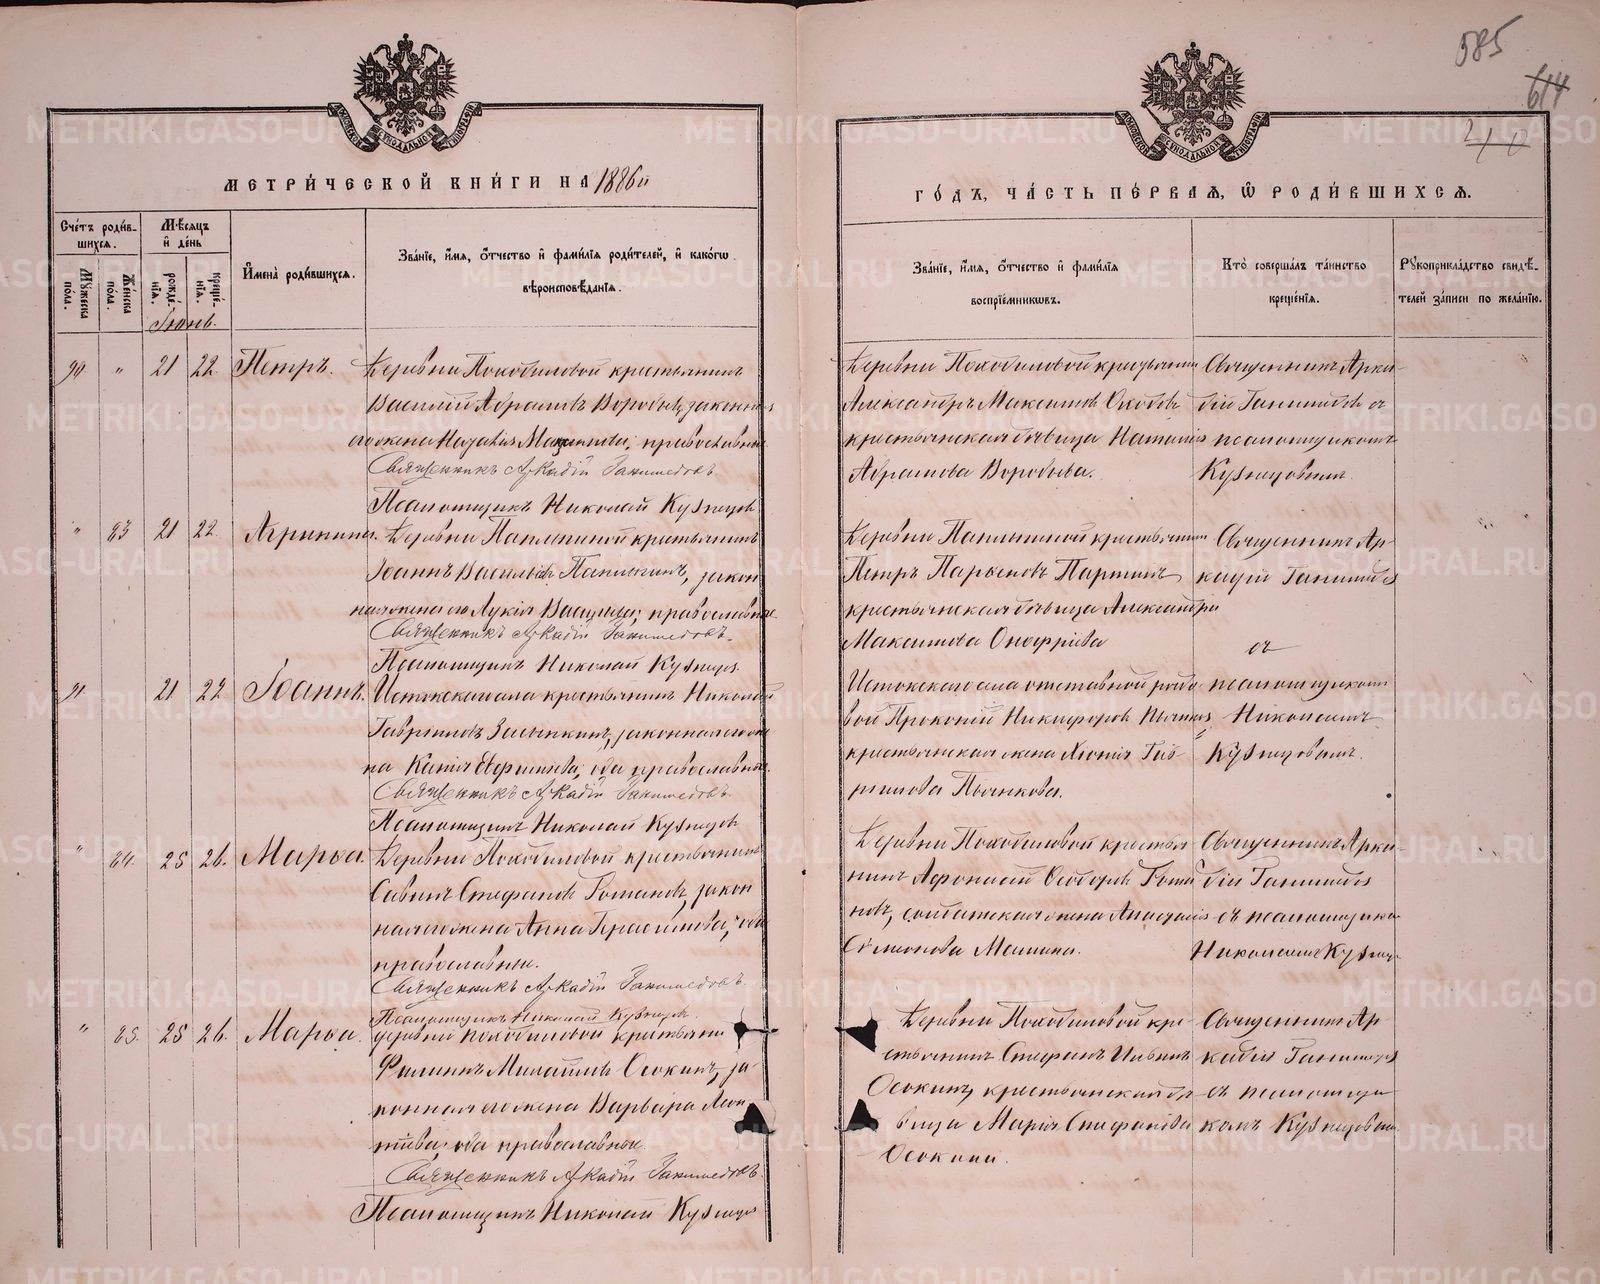 585
614
МЕТРИ́ЧЕСКОЙ КНИ́ГИ НА 1886й
ГО́ДЪ, ЧА́СТЬ ПЕ́РВАЯ, Ѡ РОДИ́ВШИХСЯ.
Счетъ родившихся.
Мужеска пола.
Женска пола.
Мѣсяцъ и день
рожденія.
крещенія.
Имена родившихся.
Званіе, имя, отчество и фамилія родителей, и какогѡ вѣроисповѣданія.
Званіе, имя, отчество и фамилія воспріемникѡвъ.
Кто совершалъ таинство крещенія.
Рукоприкладство свидѣтелей записи по желанію.
Іюнь.
90 " 21 22 Петръ.
Деревни Походиловой крестьянинъ
Василій Абрамовъ Воробьевъ, законная
его жена Наталія Максимова; православные
Священникъ Аркадій Ганимедовъ
Псаломщикъ Николай Кузнецовъ
Деревни Походиловой крестьянинъ
Александръ Максимовъ
крестьянская дѣвица Наталія
Абрамова Воробьева.
Священникъ Арка-
дій Ганимедовъ съ
псаломщикомъ
Кузнецовымъ.
" 83 21 22. Агрипина.
крестьянинъ
Іоаннъ Васильевъ закон
ная жена его Лукія православные
Священникъ Аркадій Ганимедовъ
Псаломщикъ Николай Кузнецовъ
крестьянинъ
Петръ
крестьянская дѣвица Александра
Максимова Онофріева
Священникъ Ар-
кадій Ганимедовъ
съ
псаломщикомъ
Николаемъ
Кузнецовымъ.
91 21 22 Іоаннъ.
Истокскаго села крестьянинъ Николай
Гавриловъ Засыпкинъ, законная его же
на оба православные.
Священникъ Аркадій Ганимедовъ
Псаломщикъ Николай Кузнецовъ
Истокскаго села отставной рядо-
вой Прокопій Никифоровъ
крестьянская жена Гав-
рилова Пьянкова.
" 84. 25 26. Марѳа.
Деревни Походиловой крестьянинъ
Савинъ Стефановъ Романовъ, закон
ная его жена Анна Герасимова, оба
православные.
Священникъ Аркадій Ганимедовъ
Псаломщикъ Николай Кузнецовъ
Деревни Походиловой крестья-
нинъ Афонасій Ѳедоровъ Рома
новъ, солдатская жена Анастасія
Симеонова
Священникъ Арка-
дій Ганимедовъ
съ псаломщикомъ
Николаемъ Кузнец-
" 85. 25 26. Марѳа.
деревни Походиловой крестьянинъ
Филипъ Осокинъ, за-
конная его жена Варвара Леон
тіева; оба православные.
Священникъ Аркадій Ганимедовъ
Псаломщикъ Николай Кузнецовъ
Деревни Походиловой кре-
стьянинъ Стефанъ
Осокинъ, крестьянская дѣ-
вица Марія Стефанова
Осокина.
Священникъ Ар-
кадій Ганимедовъ
съ псаломщи-
комъ Кузнецовымъ.
METRIKI.GASO-URAL.RU